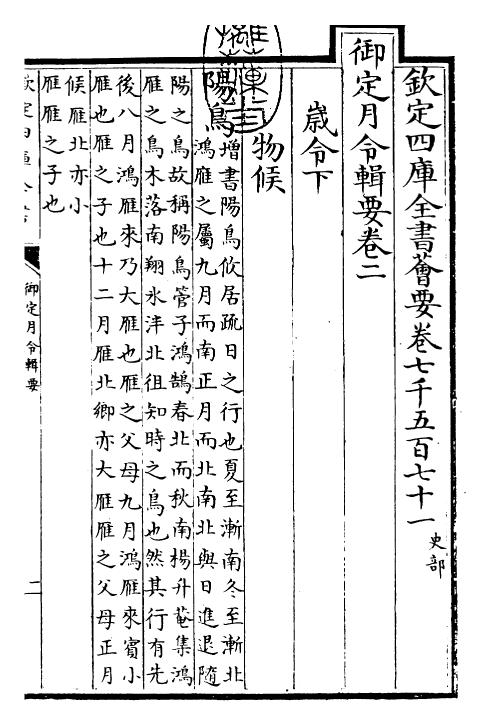 欽定四庫全書薈要卷七千五百七十一 史部
御定月令輯要卷二
歲令下
物候
陽鳥 增書陽鳥攸居疏日之行也夏至漸南冬至漸北
鴻雁之屬九月而南正月而北南北與日進退隨
陽之鳥故稱陽鳥管子鴻鵠春北而秋南楊升菴集鴻
雁之鳥木落南翔氷泮北徂知時之鳥也然其行有先
後八月鴻雁來乃大雁也雁之父母九月鴻雁來賓小
雁也雁之子也十二月雁北鄉亦大雁雁之父母正月
候雁北亦小
雁雁之子也
御定月令輯要
二